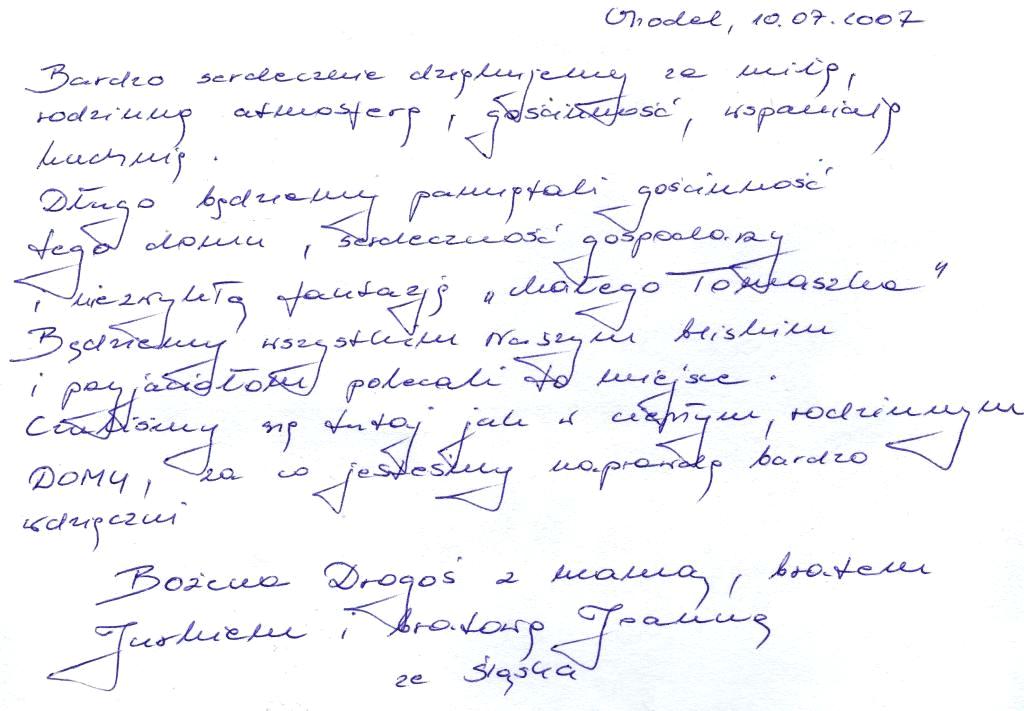 Chodel, 10.07.2007
Bardzo serdecznie dziękujemy za miłą,
rodzinną atmosferę, gościnność, wspaniałą
kuchnię.
Długo będziemy pamiętali gościnność
tego domu, serdeczność gospodarzy
i niezwykłą fantazję „Małego Tomaszka”
Będziemy wszystkim naszym bliskim
i przyjaciołom polecali to miejsce.
Czuliśmy się tutaj jak w ciepłym, rodzinnym
DOMU, za co jesteśmy naprawdę bardzo
wdzięczni
Bożena Drogoś z mamą, bratem
Jurkiem i bratową Joanną
ze Śląska